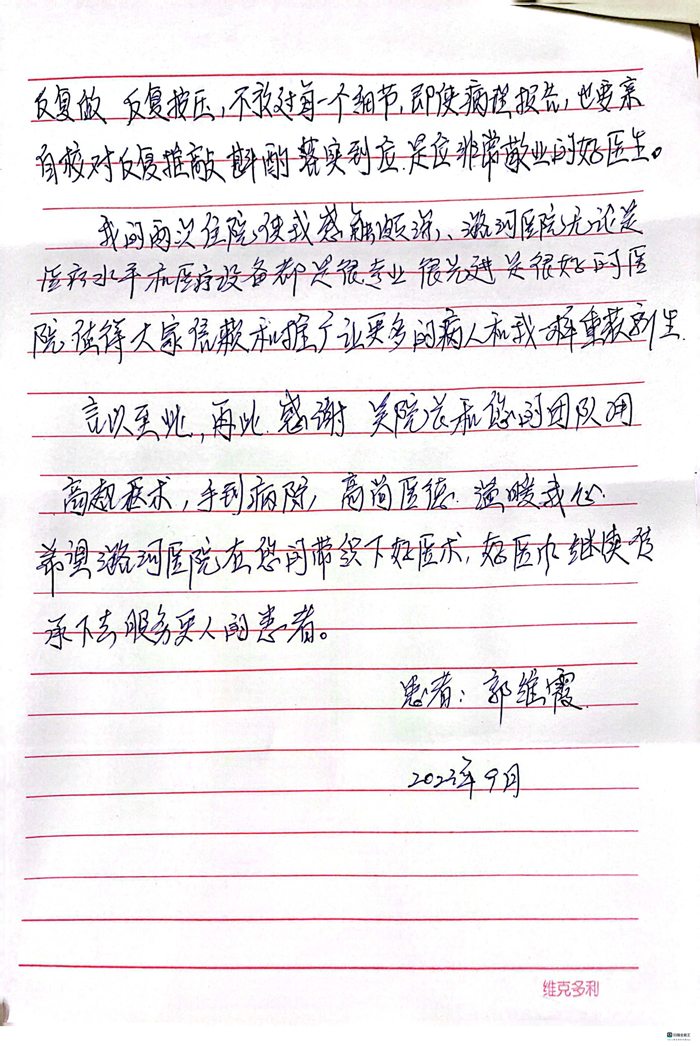 反复做 反复按压，不放过每一个细节，即使病理报告，也要亲
自核对反复推敲 斟酌 落实到应 是位非常敬业的好医生。
我的两次住院使我感触颇深、潞河医院无论是
医疗水平和医疗设备都是很专业 很先进 是很好的医
院 值得大家信赖和推广让更多的病人和我一样重获新生.
言以至此，再此 感谢 吴院长和您的团队用
高超医术，手到病除，高尚医德. 温暖我心.
希望潞河医院在您的带领下好医术，好医德 继续传
承下去 服务更人的患者。
患者：郭维霞
2023年9月
维克多利